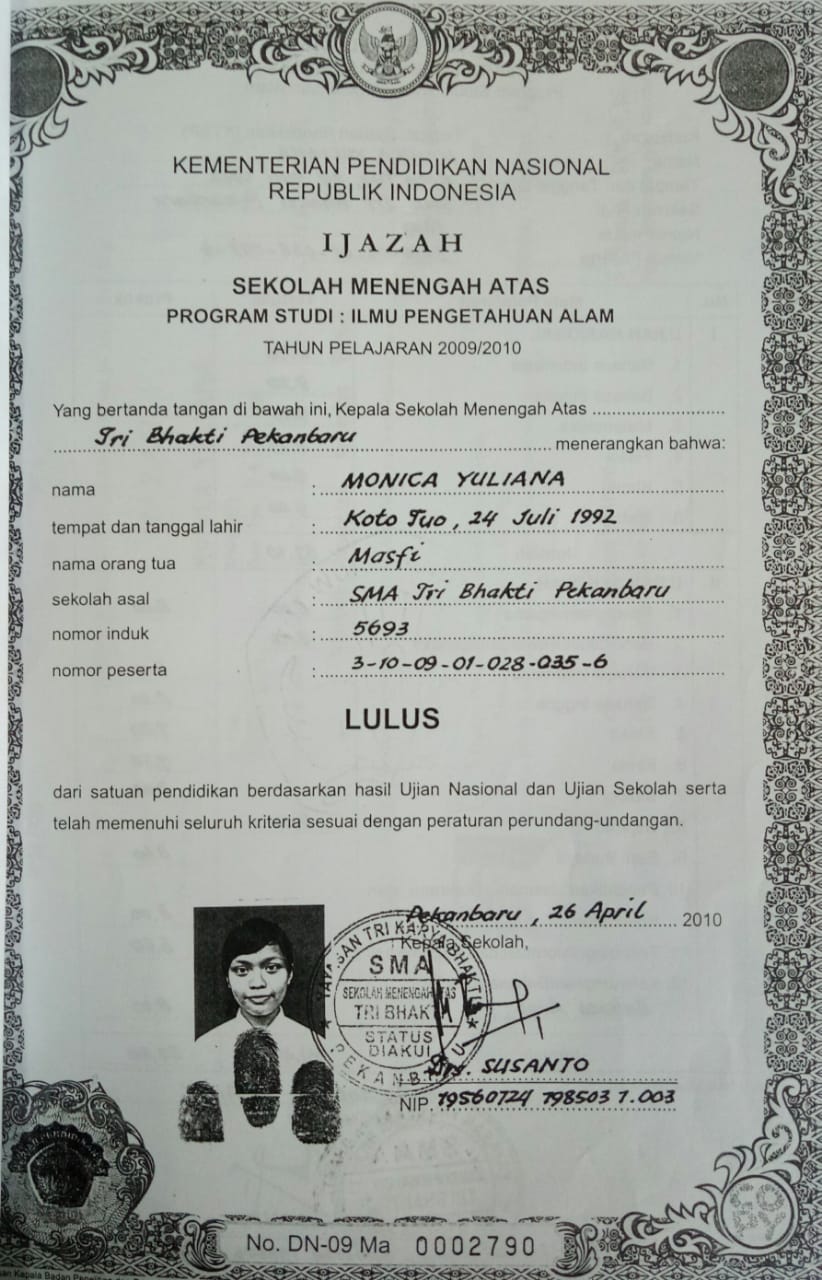 KEMENTERIAN PENDIDIKAN NASIONAL
REPUBLIK INDONESIA
IJAZAH
SEKOLAH MENENGAH ATAS
PROGRAM STUDI : ILMU PENGETAHUAN ALAM
TAHUN PELAJARAN 2009/2010
Yang bertanda tangan di bawah ini, Kepala Sekolah Menengah Atas
Tri Bhakti Pekanbaru menerangkan bahwa:
nama : MONICA YULIANA
tempat dan tanggal lahir : Koto Tuo, 24 Juli 1992
nama orang tua : Masfi
sekolah asal : SMA Tri Bhakti Pekanbaru
nomor induk : 5693
nomor peserta : 3-10-09-01-028-035-6
LULUS
dari satuan pendidikan berdasarkan hasil Ujian Nasional dan Ujian Sekolah serta
telah memenuhi seluruh kriteria sesuai dengan peraturan perundang-undangan.
Pekanbaru, 26 April 2010
Kepala Sekolah,
SMA
SEKOLAH MENENGAH ATAS
TRI BHAKTI
STATUS
DIAKUI
PEKANBARU
Drs. SUSANTO
NIP. 19560724 198503 1.003
No. DN-09 Ma 0002790